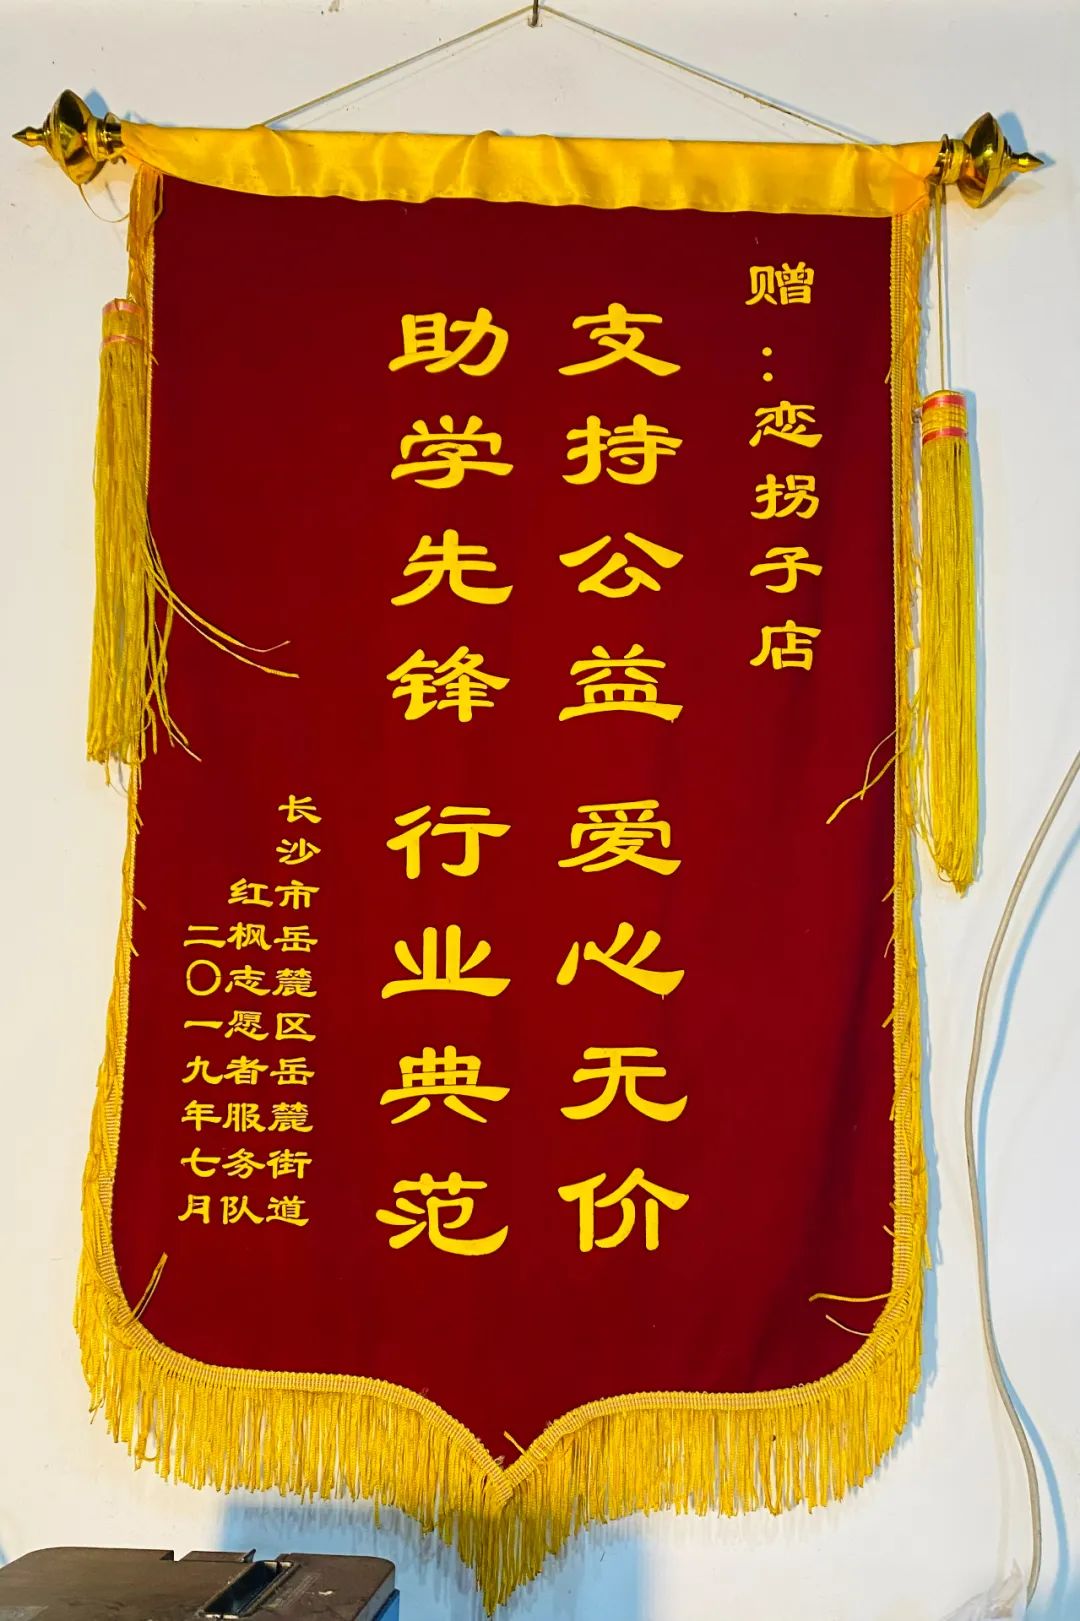 赠：恋拐子店
支持公益 爱心无价
助学先锋 行业典范
长沙市岳麓区岳麓街道
红枫志愿者服务队
二〇一九年七月